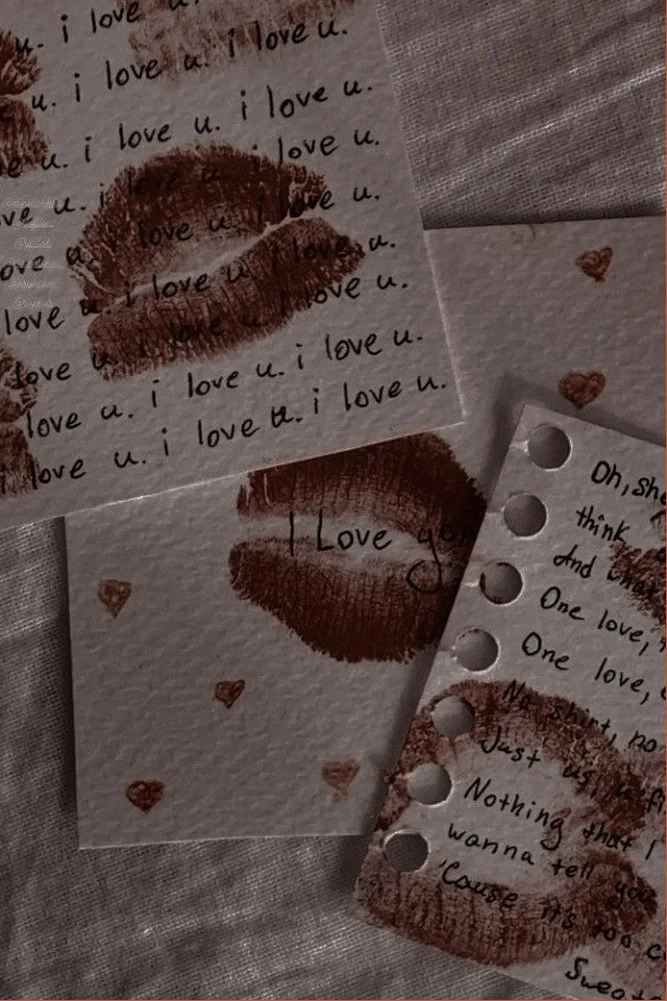 u. i love u.
u. i love u. i love u.
u. i love u. i love u.
u. i love u. i love u.
ve u. i love u. i love u.
ove u. i love u. i love u.
love u. i love u. i love u.
love u. i love u. i love u.
love u. i love u. i love u.
i love u. i love u. i love u.
I Love you
Oh, sh
think
And what
One love,
One love,
No shirt, no
Just us,
Nothing that I
wanna tell you
'Cause it's too c
Sweat